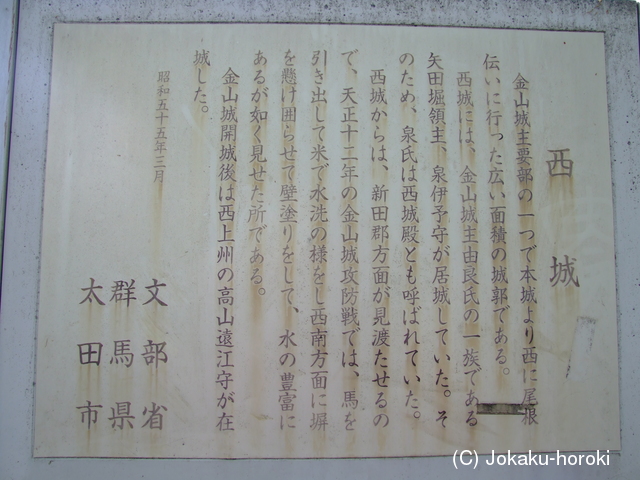 西城
金山城主要部の一つで本城より西に尾根
伝いに行った広い面積の城郭である。
西城には、金山城主由良氏の一族である
矢田堀領主、泉伊予守が居城していた。そ
のため、泉氏は西城殿とも呼ばれていた。
西城からは、新田郡方面が見渡たせるの
で、天正十二年の金山城攻防戦では、馬を
引き出して米で水洗の様をし西南方面に塀
を懸け囲らせて壁塗りをして、水の豊富に
あるが如く見せた所である。
金山城開城後は西上州の高山遠江守が在
城した。
昭和五十五年三月
文部省
群馬県
太田市
(C) Jokaku-horoki